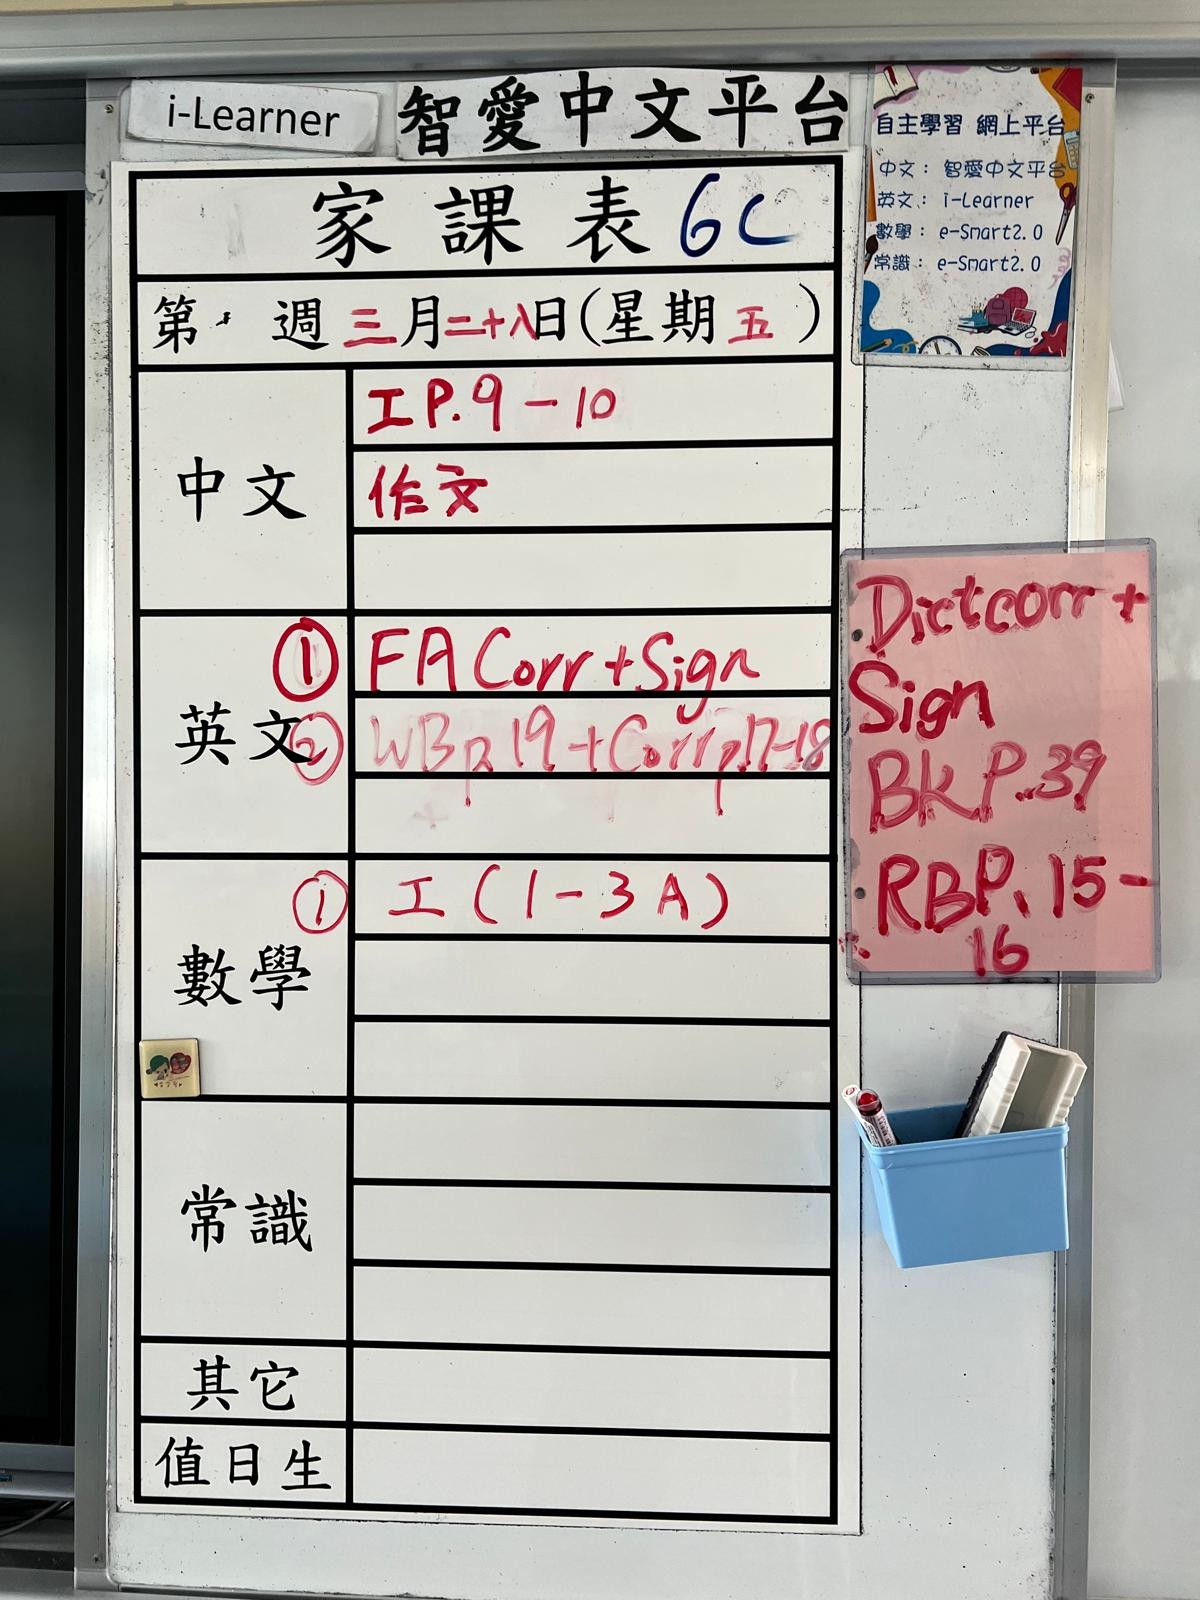 i-Learner
智愛中文平台
自主學習 網上平台
中文： 智愛中文平台
英文： i-Learner
數學： e-Smart2.0
常識： e-Smart2.0
家課表 6C
第 週 三月二十八日(星期五)
中文
工 P.9-10
作文
英文
① FA Corr + Sign
② WB p.19 + Corr p.17-18
數學
① 工 (1-3A)
常識
其它
值日生
Dictcorr +
Sign
BK P.39
RBP. 15-
16